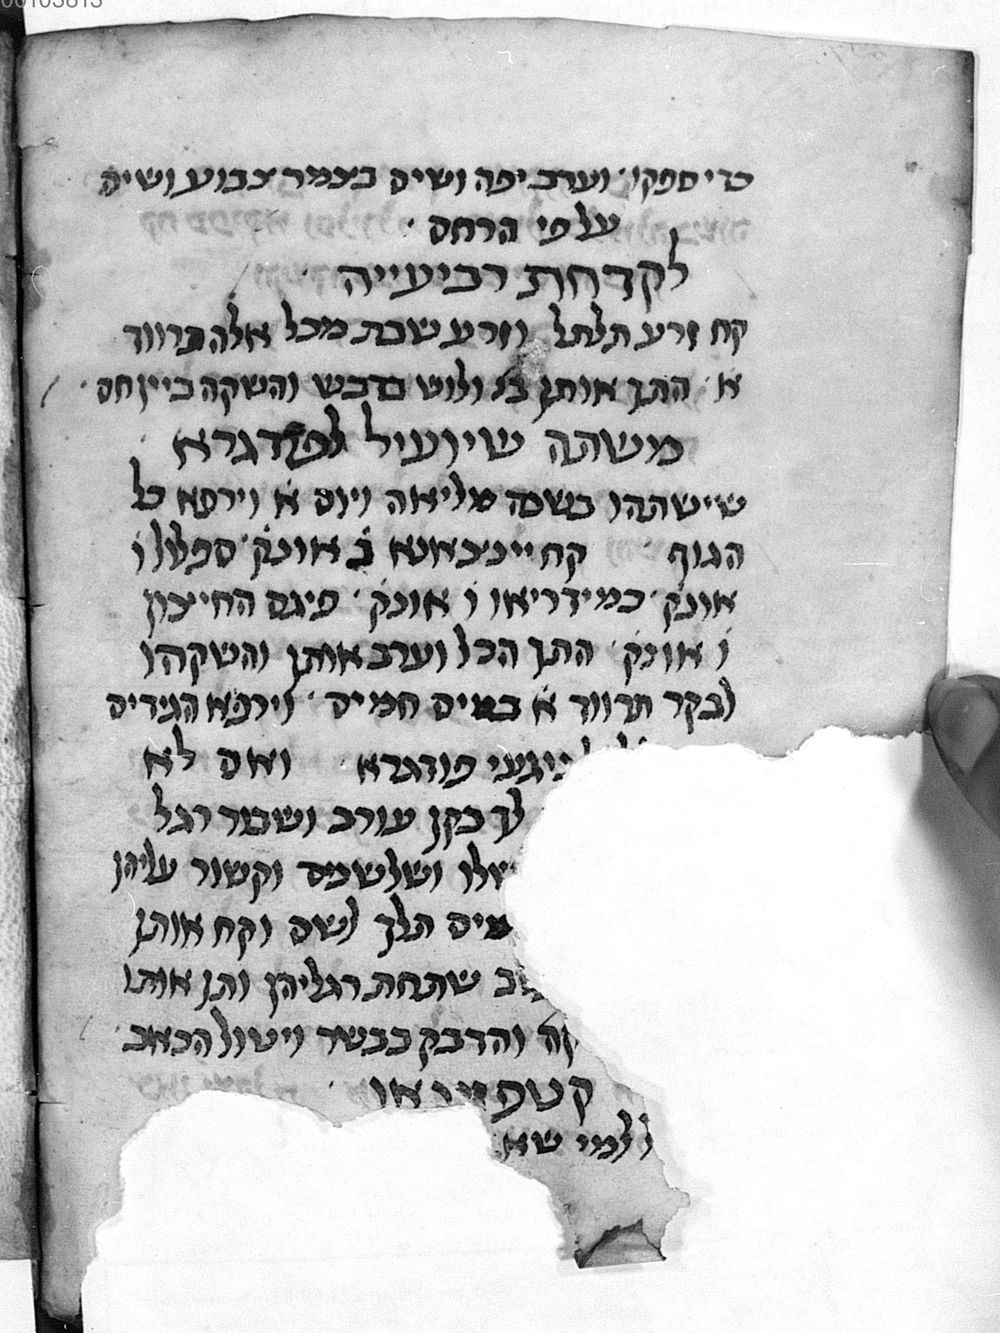 00103813
כדי ספקו וערב יפה ושים בצמר צבוע ושים
על פי הרחם
לקדחת רביעייה
קח זרע תלתל וזרע שבת מכל אלה תרווד
א התך אותן ולוש בדבש והשקה ביין חם
משתה שיועיל לפודגרא
שישתהו בשנה מליאה ויום א וירפא כל
הגוף קח ב אונק ו
אונק כמידריאו ו אונק פיגם החיצון
ו אונק התך הכל וערב אותן והשקהו
לבקר תרווד א במים חמים וירפא הגידים
פודגרא ואם לא
לך בקן עורב ושבור רגל
ושלשתם וקשור עליהן
מים תלך לשם וקח אותן
שתחת רגליהן ותן אותו
והדבק בבשר ויטול הכאב
ולמי שא